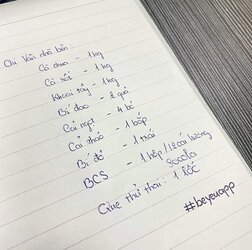 Chị Vân nhà bên:
Cà chua - 1kg
Cà rốt - 1kg
Khoai tây - 1kg
Bí đao - 2 quả
Cải ngọt - 4 bó
Cải thảo - 1 bắp
Bí đỏ - 1 trái
BCS - 1 hộp / 12 cái hương Socola
Que thử thai: 1 lốc
#beyeuapp